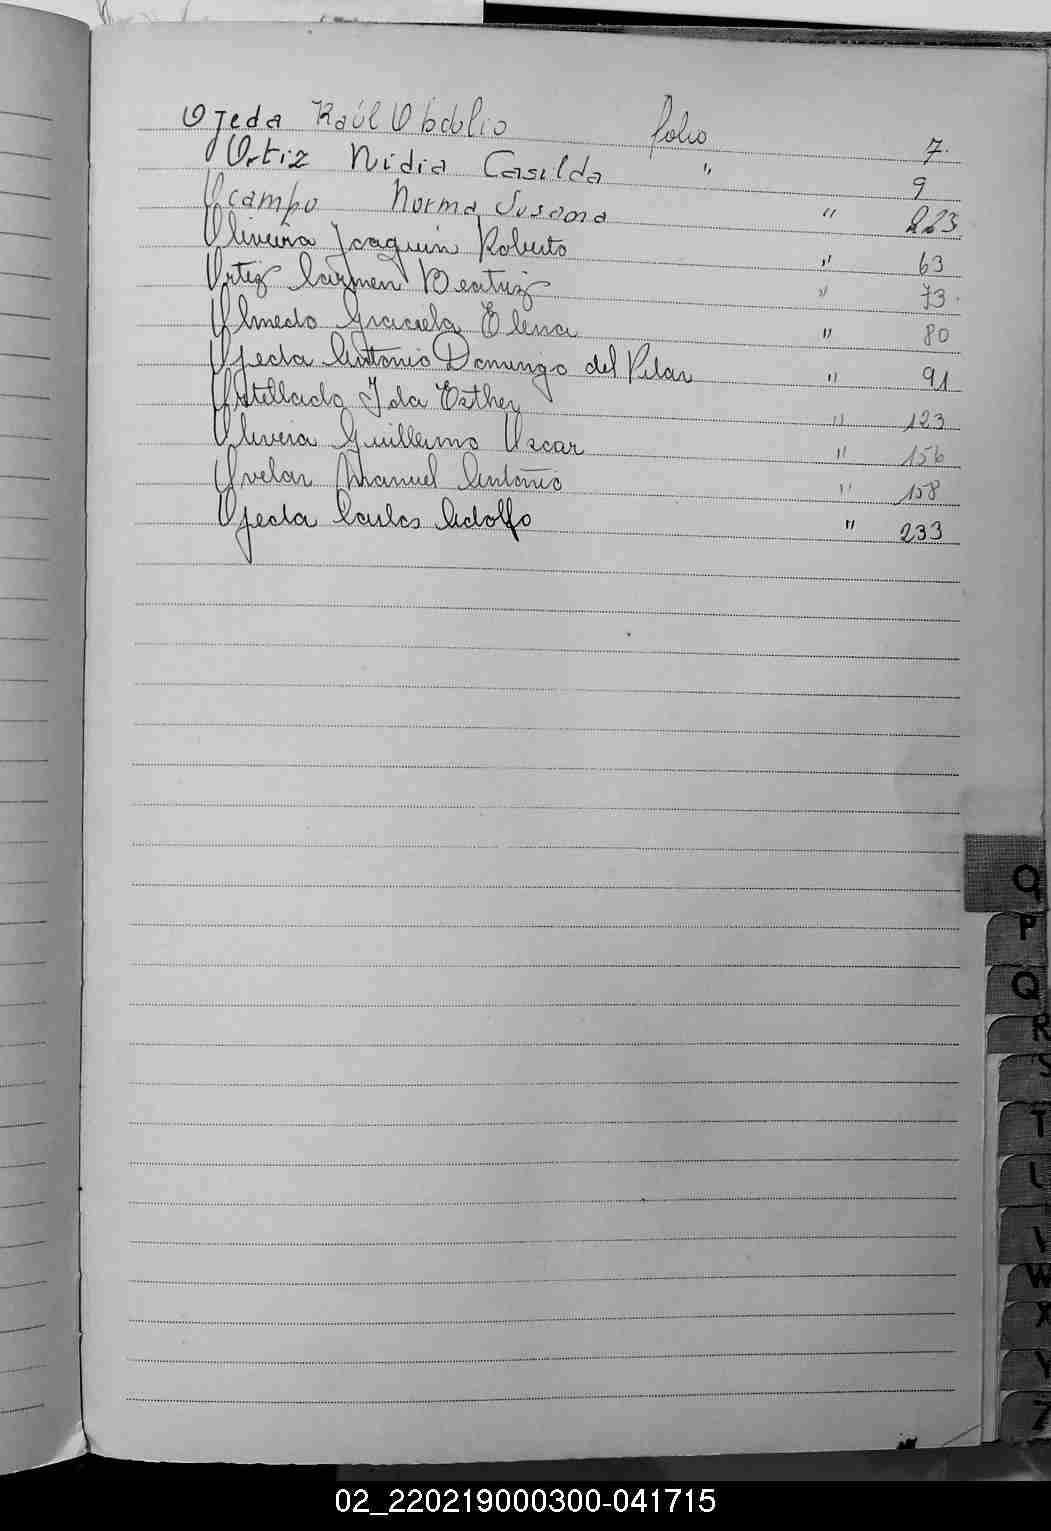 Ojeda Raúl Obdulio folio 7.
Ortiz Nidia Casilda " 9
Ocampo Norma Susana " 223
Oliveira Joaquin Roberto " 63
Ortiz Carmen Beatriz " 73.
Olmedo Graciela Elena " 80
Ojeda Antonio Domingo del Pilar " 91
Ostellado Ida Esther " 123
Oliveia Guillermo Oscar " 156
Ovelar Manuel Antonio " 158
Ojeda Carlos Adolfo " 233
Q
P
Q
R
S
T
U
V
W
X
Y
Z
02_220219000300-041715